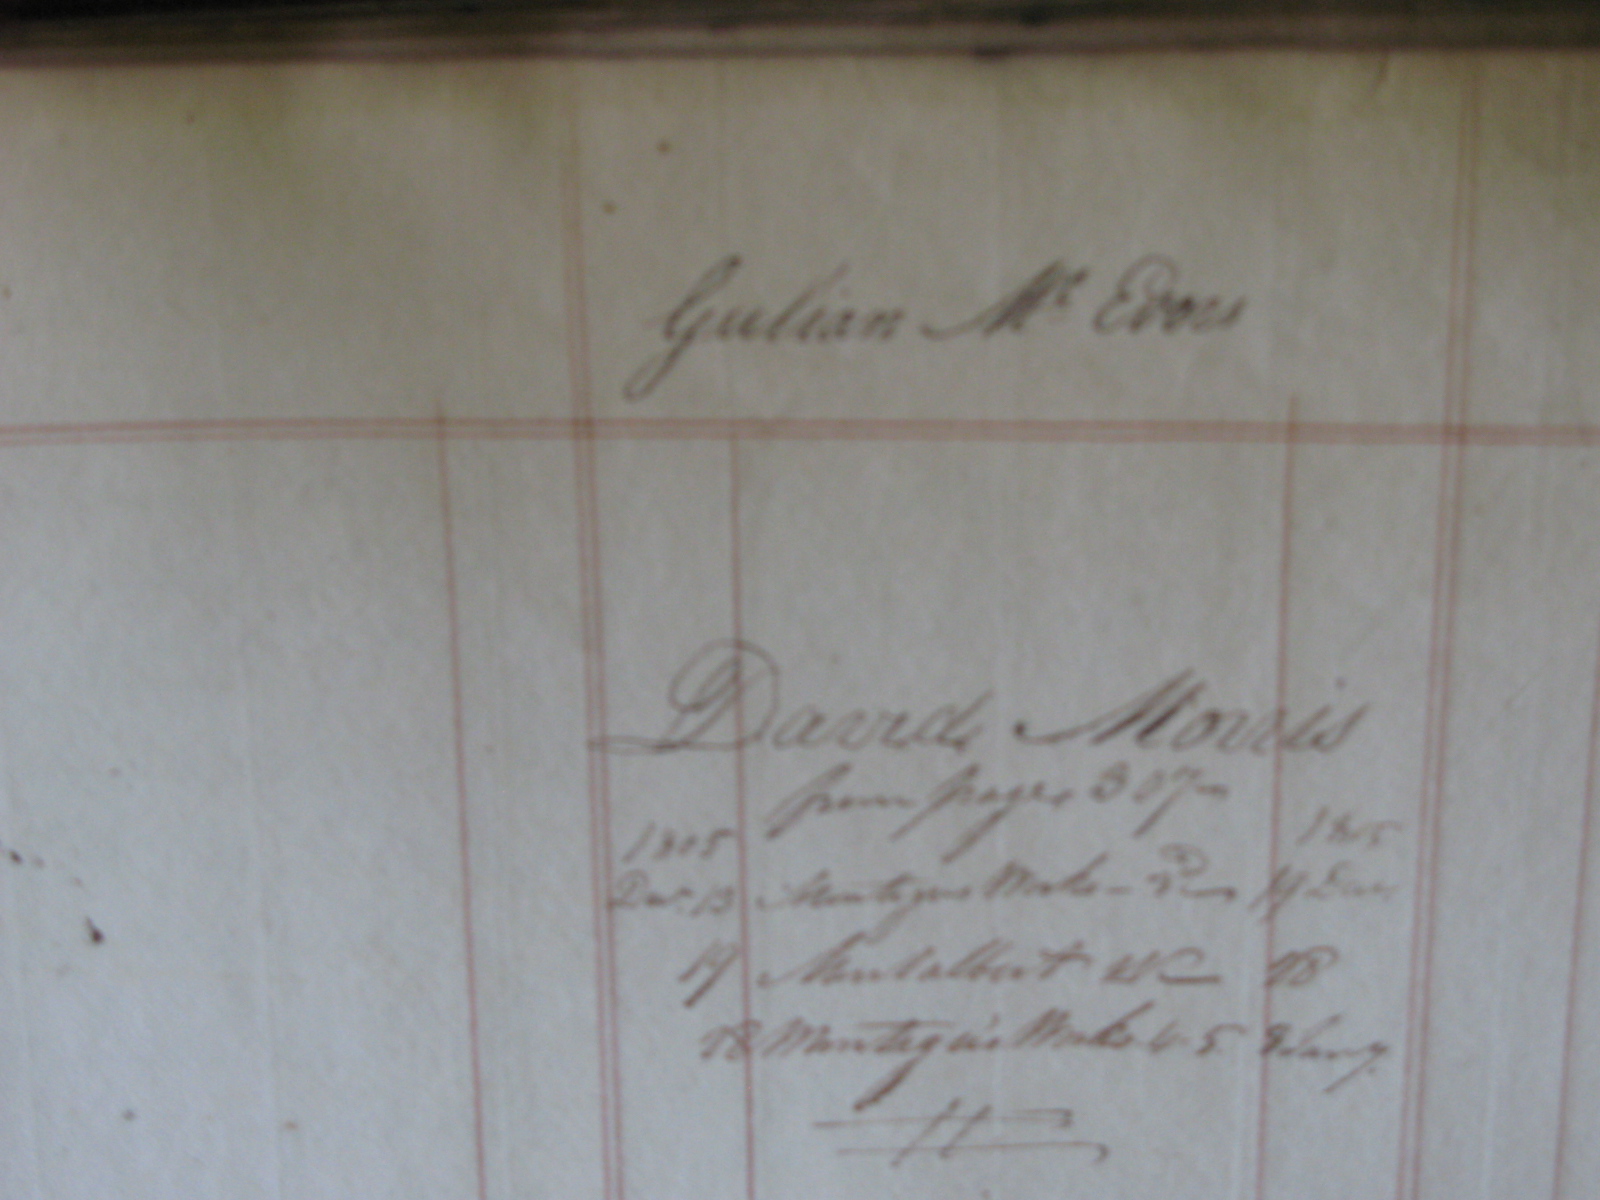 Gulian Mc Evers
David Morris
from page 307
1805 1805
Decr. 13 Montague Works - 2d 17 Decr
17 Montalbert 28
28 Montague Works 4. 5 8 Jany